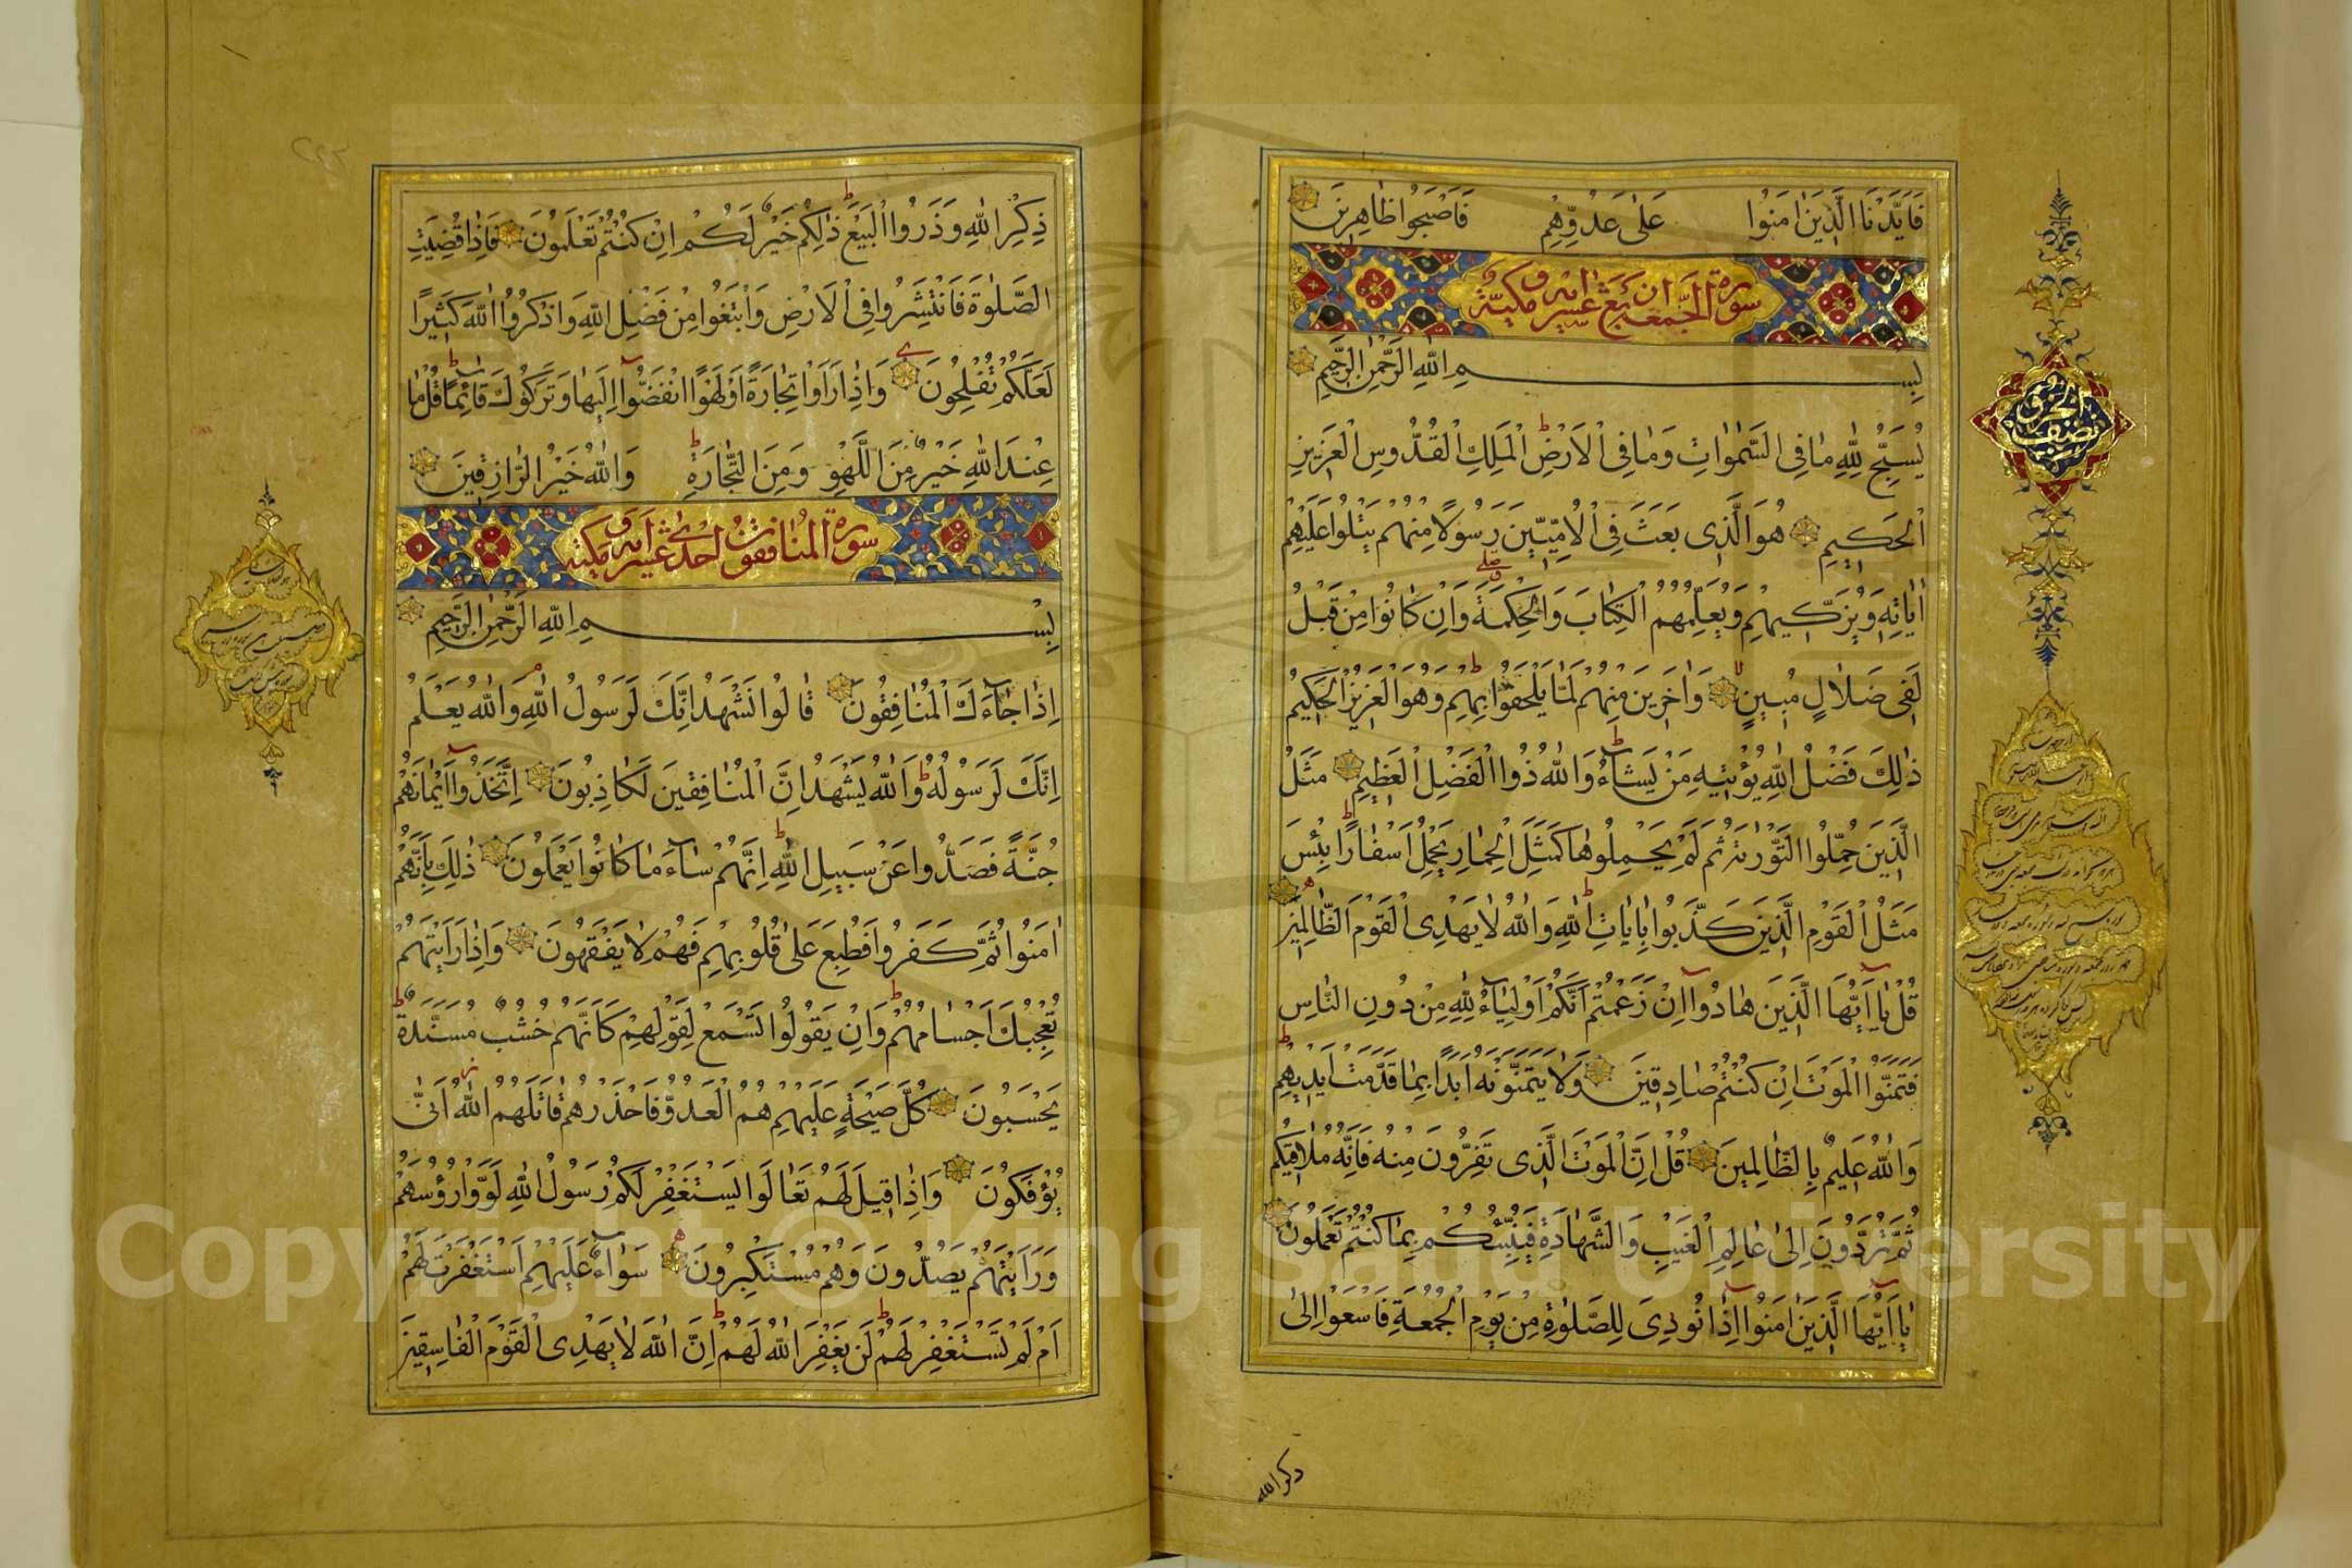 فَاَيَّدْنَا الَّذِينَ اٰمَنُوا عَلٰى عَدُوِّهِمْ فَاَصْبَحُوا ظَاهِرِينَ
سورة الجمعة
بِسْمِ اللّٰهِ الرَّحْمٰنِ الرَّحِيمِ
يُسَبِّحُ لِلّٰهِ مَا فِى السَّمٰوَاتِ وَمَا فِى الْاَرْضِ الْمَلِكِ الْقُدُّوسِ الْعَزِيزِ
الْحَكِيمِ هُوَ الَّذِى بَعَثَ فِى الْاُمِّيِّينَ رَسُولًا مِنْهُمْ يَتْلُوا عَلَيْهِمْ
اٰيَاتِهِ وَيُزَكِّيهِمْ وَيُعَلِّمُهُمُ الْكِتَابَ وَالْحِكْمَةَ وَاِنْ كَانُوا مِنْ قَبْلُ
لَفِى ضَلَالٍ مُبِينٍ وَاٰخَرِينَ مِنْهُمْ لَمَّا يَلْحَقُوا بِهِمْ وَهُوَ الْعَزِيزُ الْحَكِيمُ
ذٰلِكَ فَضْلُ اللّٰهِ يُؤْتِيهِ مَنْ يَشَآءُ وَاللّٰهُ ذُوا الْفَضْلِ الْعَظِيمِ مَثَلُ
الَّذِينَ حُمِّلُوا التَّوْرٰيةَ ثُمَّ لَمْ يَحْمِلُوهَا كَمَثَلِ الْحِمَارِ يَحْمِلُ اَسْفَارًا بِئْسَ
مَثَلُ الْقَوْمِ الَّذِينَ كَذَّبُوا بِاٰيَاتِ اللّٰهِ وَاللّٰهُ لَا يَهْدِى الْقَوْمَ الظَّالِمِينَ
قُلْ يَآ اَيُّهَا الَّذِينَ هَادُوآ اِنْ زَعَمْتُمْ اَنَّكُمْ اَوْلِيَآءُ لِلّٰهِ مِنْ دُونِ النَّاسِ
فَتَمَنَّوُا الْمَوْتَ اِنْ كُنْتُمْ صَادِقِينَ وَلَا يَتَمَنَّوْنَهُ اَبَدًا بِمَا قَدَّمَتْ اَيْدِيهِمْ
وَاللّٰهُ عَلِيمٌ بِالظَّالِمِينَ قُلْ اِنَّ الْمَوْتَ الَّذِى تَفِرُّونَ مِنْهُ فَاِنَّهُ مُلَاقِيكُمْ
ثُمَّ تُرَدُّونَ اِلٰى عَالِمِ الْغَيْبِ وَالشَّهَادَةِ فَيُنَبِّئُكُمْ بِمَا كُنْتُمْ تَعْمَلُونَ
يَآ اَيُّهَا الَّذِينَ اٰمَنُوآ اِذَا نُودِىَ لِلصَّلٰوةِ مِنْ يَوْمِ الْجُمُعَةِ فَاسْعَوْا اِلٰى
ذكر الله
نصف الحزب
ذِكْرِ اللّٰهِ وَذَرُوا الْبَيْعَ ذٰلِكُمْ خَيْرٌ لَكُمْ اِنْ كُنْتُمْ تَعْلَمُونَ فَاِذَا قُضِيَتِ
الصَّلٰوةُ فَانْتَشِرُوا فِى الْاَرْضِ وَابْتَغُوا مِنْ فَضْلِ اللّٰهِ وَاذْكُرُوا اللّٰهَ كَثِيرًا
لَعَلَّكُمْ تُفْلِحُونَ وَاِذَا رَاَوْا تِجَارَةً اَوْ لَهْوًا انْفَضُّوآ اِلَيْهَا وَتَرَكُوكَ قَآئِمًا قُلْ مَا
عِنْدَ اللّٰهِ خَيْرٌ مِنَ اللَّهْوِ وَمِنَ التِّجَارَةِ وَاللّٰهُ خَيْرُ الرَّازِقِينَ
سورة المنافقون احدى عشر اية مكية
بِسْمِ اللّٰهِ الرَّحْمٰنِ الرَّحِيمِ
اِذَا جَآءَكَ الْمُنَافِقُونَ قَالُوا نَشْهَدُ اِنَّكَ لَرَسُولُ اللّٰهِ وَاللّٰهُ يَعْلَمُ
اِنَّكَ لَرَسُولُهُ وَاللّٰهُ يَشْهَدُ اِنَّ الْمُنَافِقِينَ لَكَاذِبُونَ اِتَّخَذُوآ اَيْمَانَهُمْ
جُنَّةً فَصَدُّوا عَنْ سَبِيلِ اللّٰهِ اِنَّهُمْ سَآءَ مَا كَانُوا يَعْمَلُونَ ذٰلِكَ بِاَنَّهُمْ
اٰمَنُوا ثُمَّ كَفَرُوا فَطُبِعَ عَلٰى قُلُوبِهِمْ فَهُمْ لَا يَفْقَهُونَ وَاِذَا رَاَيْتَهُمْ
تُعْجِبُكَ اَجْسَامُهُمْ وَاِنْ يَقُولُوا تَسْمَعْ لِقَوْلِهِمْ كَاَنَّهُمْ خُشُبٌ مُسَنَّدَةٌ
يَحْسَبُونَ كُلَّ صَيْحَةٍ عَلَيْهِمْ هُمُ الْعَدُوُّ فَاحْذَرْهُمْ قَاتَلَهُمُ اللّٰهُ اَنّٰى
يُؤْفَكُونَ وَاِذَا قِيلَ لَهُمْ تَعَالَوْا يَسْتَغْفِرْ لَكُمْ رَسُولُ اللّٰهِ لَوَّوْا رُؤُسَهُمْ
وَرَاَيْتَهُمْ يَصُدُّونَ وَهُمْ مُسْتَكْبِرُونَ سَوَآءٌ عَلَيْهِمْ اَسْتَغْفَرْتَ لَهُمْ
اَمْ لَمْ تَسْتَغْفِرْ لَهُمْ لَنْ يَغْفِرَ اللّٰهُ لَهُمْ اِنَّ اللّٰهَ لَا يَهْدِى الْقَوْمَ الْفَاسِقِينَ
Copyright © King Saud University